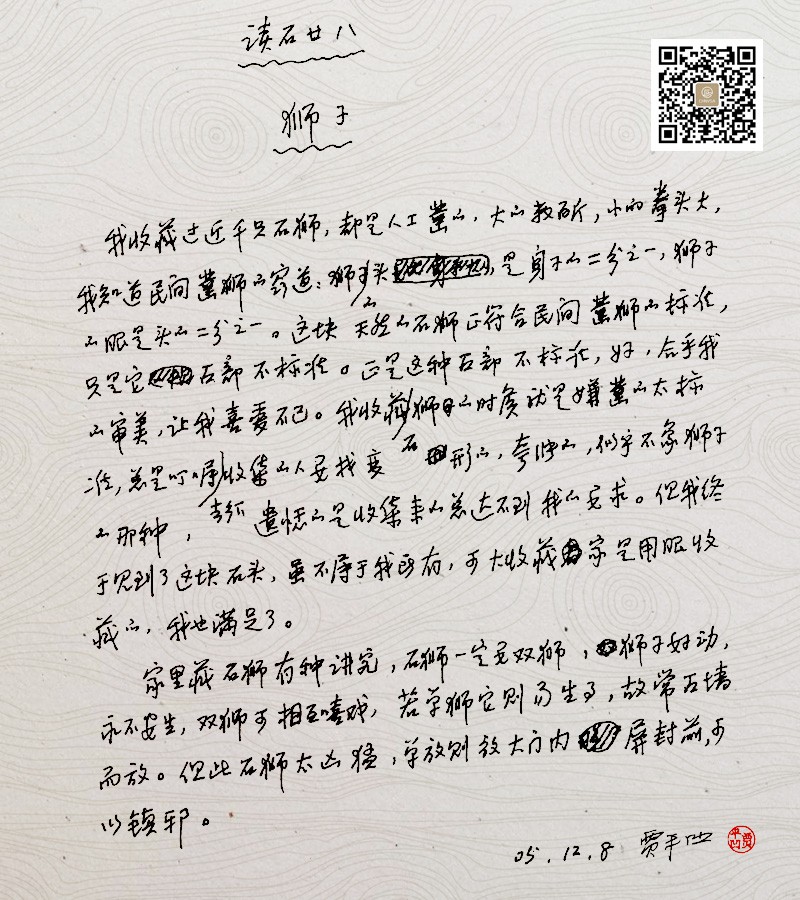 读石廿八
狮子
我收藏过近千只石狮，都是人工凿的，大的数斤，小的拳头大，
我知道民间凿狮的窍道：狮子头是身子的二分之一，狮子
的眼是头的二分之一。这块天然的石狮正符合民间凿狮的标准，
只是它后部不标准。正是这种后部不标准，好，合乎我
的审美，让我喜爱不已。我收藏狮子的时候就是嫌凿的太标
准，总是叮嘱收集的人要找变形的，夸张的，似乎不象狮子
的那种，遗憾的是收集来的总达不到我的要求。但我终
于见到了这块石头，虽不属于我所有，可大收藏家是用眼收
藏的，我也满足了。
家里藏石狮有种讲究，石狮一定要双狮，狮子好动，
永不安生，双狮可相互嘻戏，若单狮它则易生事，故常占墙
而放。但此石狮太凶猛，单放则放大门内屏封前，可
以镇邪。
05.12.8 贾平凹
贾平凹